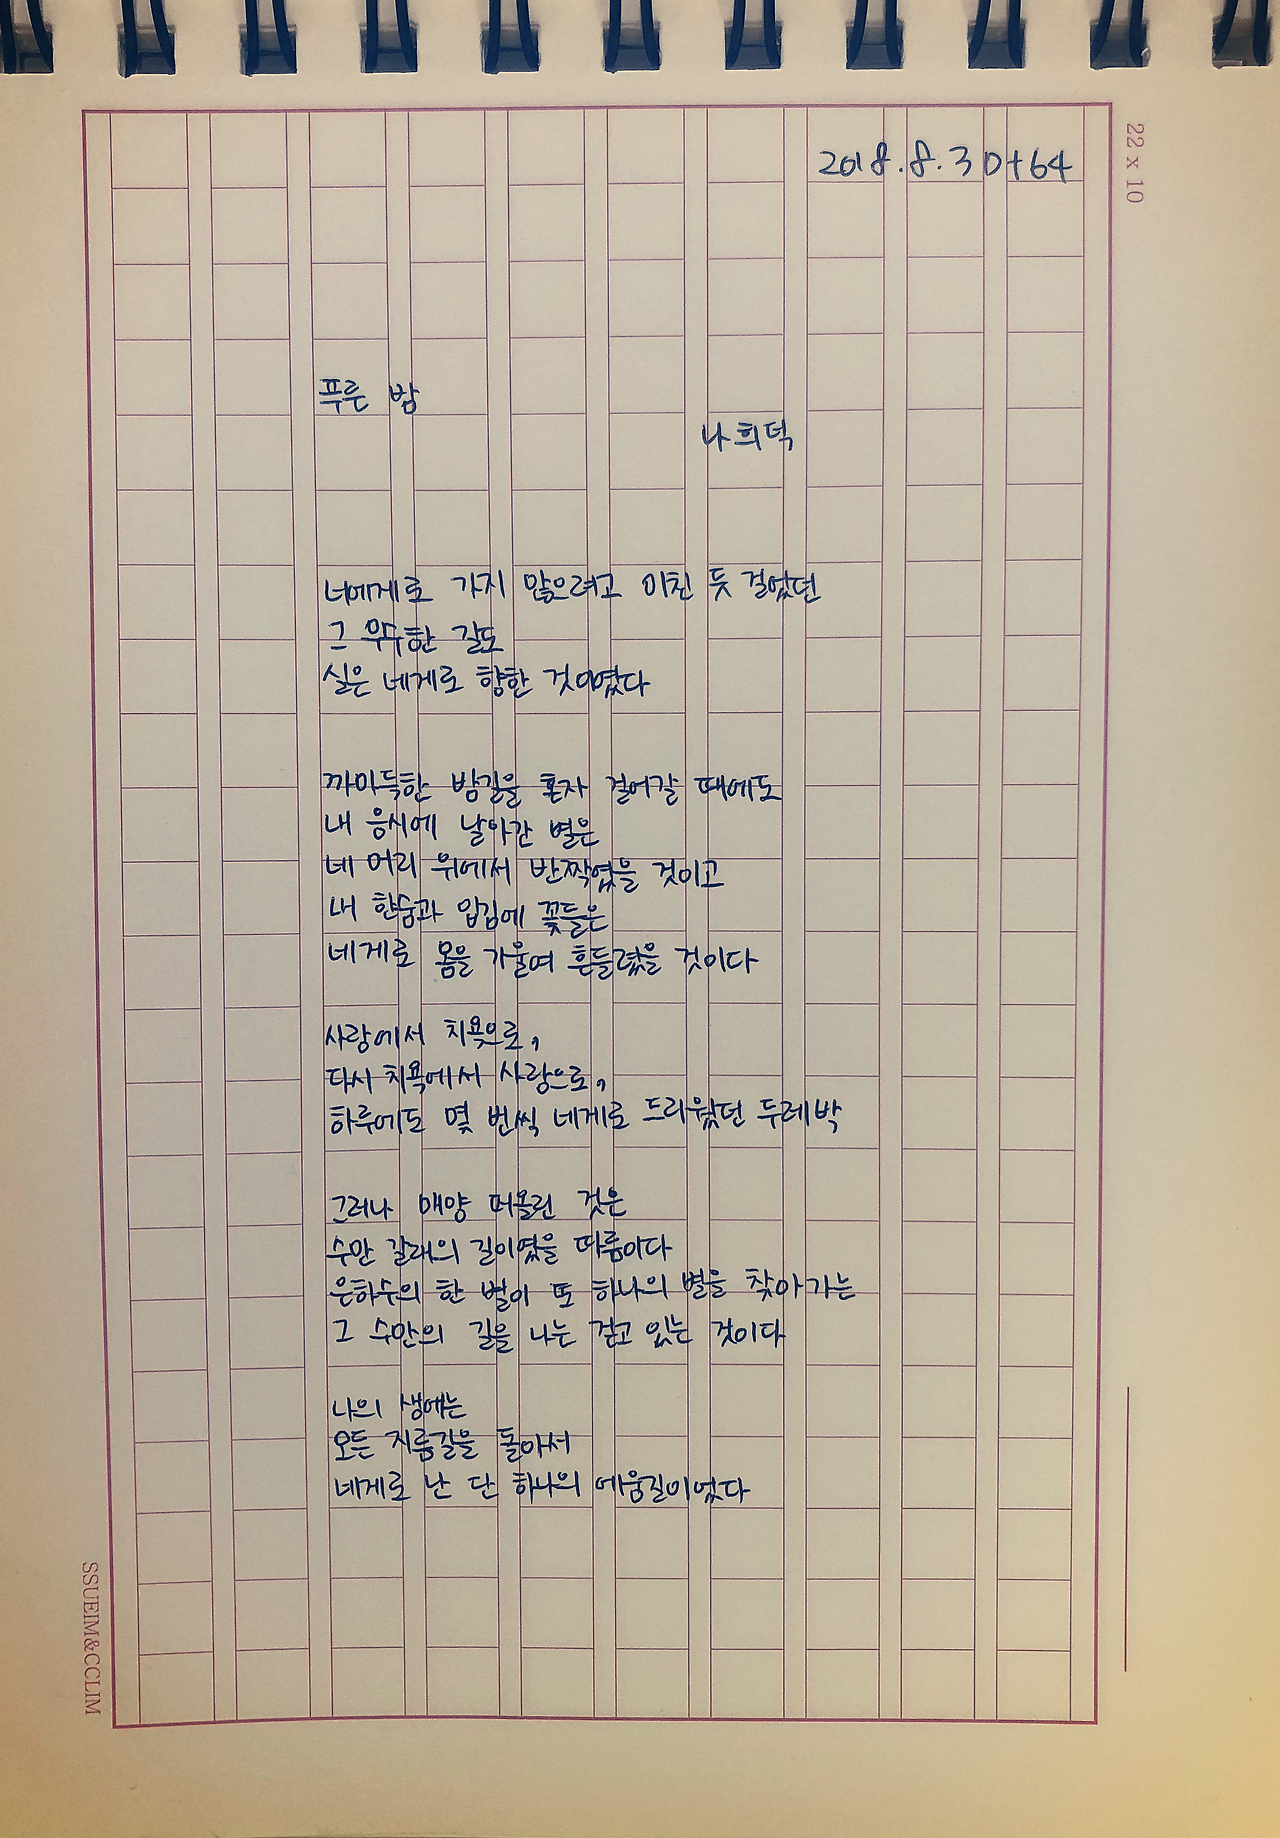 2018.8.30+64
22 x 10
푸른 밤
나희덕
너에게로 가지 않으려고 미친 듯 걸었던
그 무수한 길도
실은 네게로 향한 것이였다
까마득한 밤길을 혼자 걸어갈 때에도
내 응시에 날아간 별은
네 머리 위에서 반짝였을 것이고
내 한숨과 입김에 꽃들은
네게로 몸을 기울여 흔들렸을 것이다
사랑에서 치욕으로,
다시 치욕에서 사랑으로,
하루에도 몇 번씩 네게로 드리웠던 두레박
그러나 매양 퍼올린 것은
수만 갈래의 길이였을 따름이다
은하수의 한 별이 또 하나의 별을 찾아가는
그 수만의 길을 나는 걷고 있는 것이다
나의 생에는
모든 지름길을 돌아서
네게로 난 단 하나의 에움길이었다
SSUEIM&CCLIM